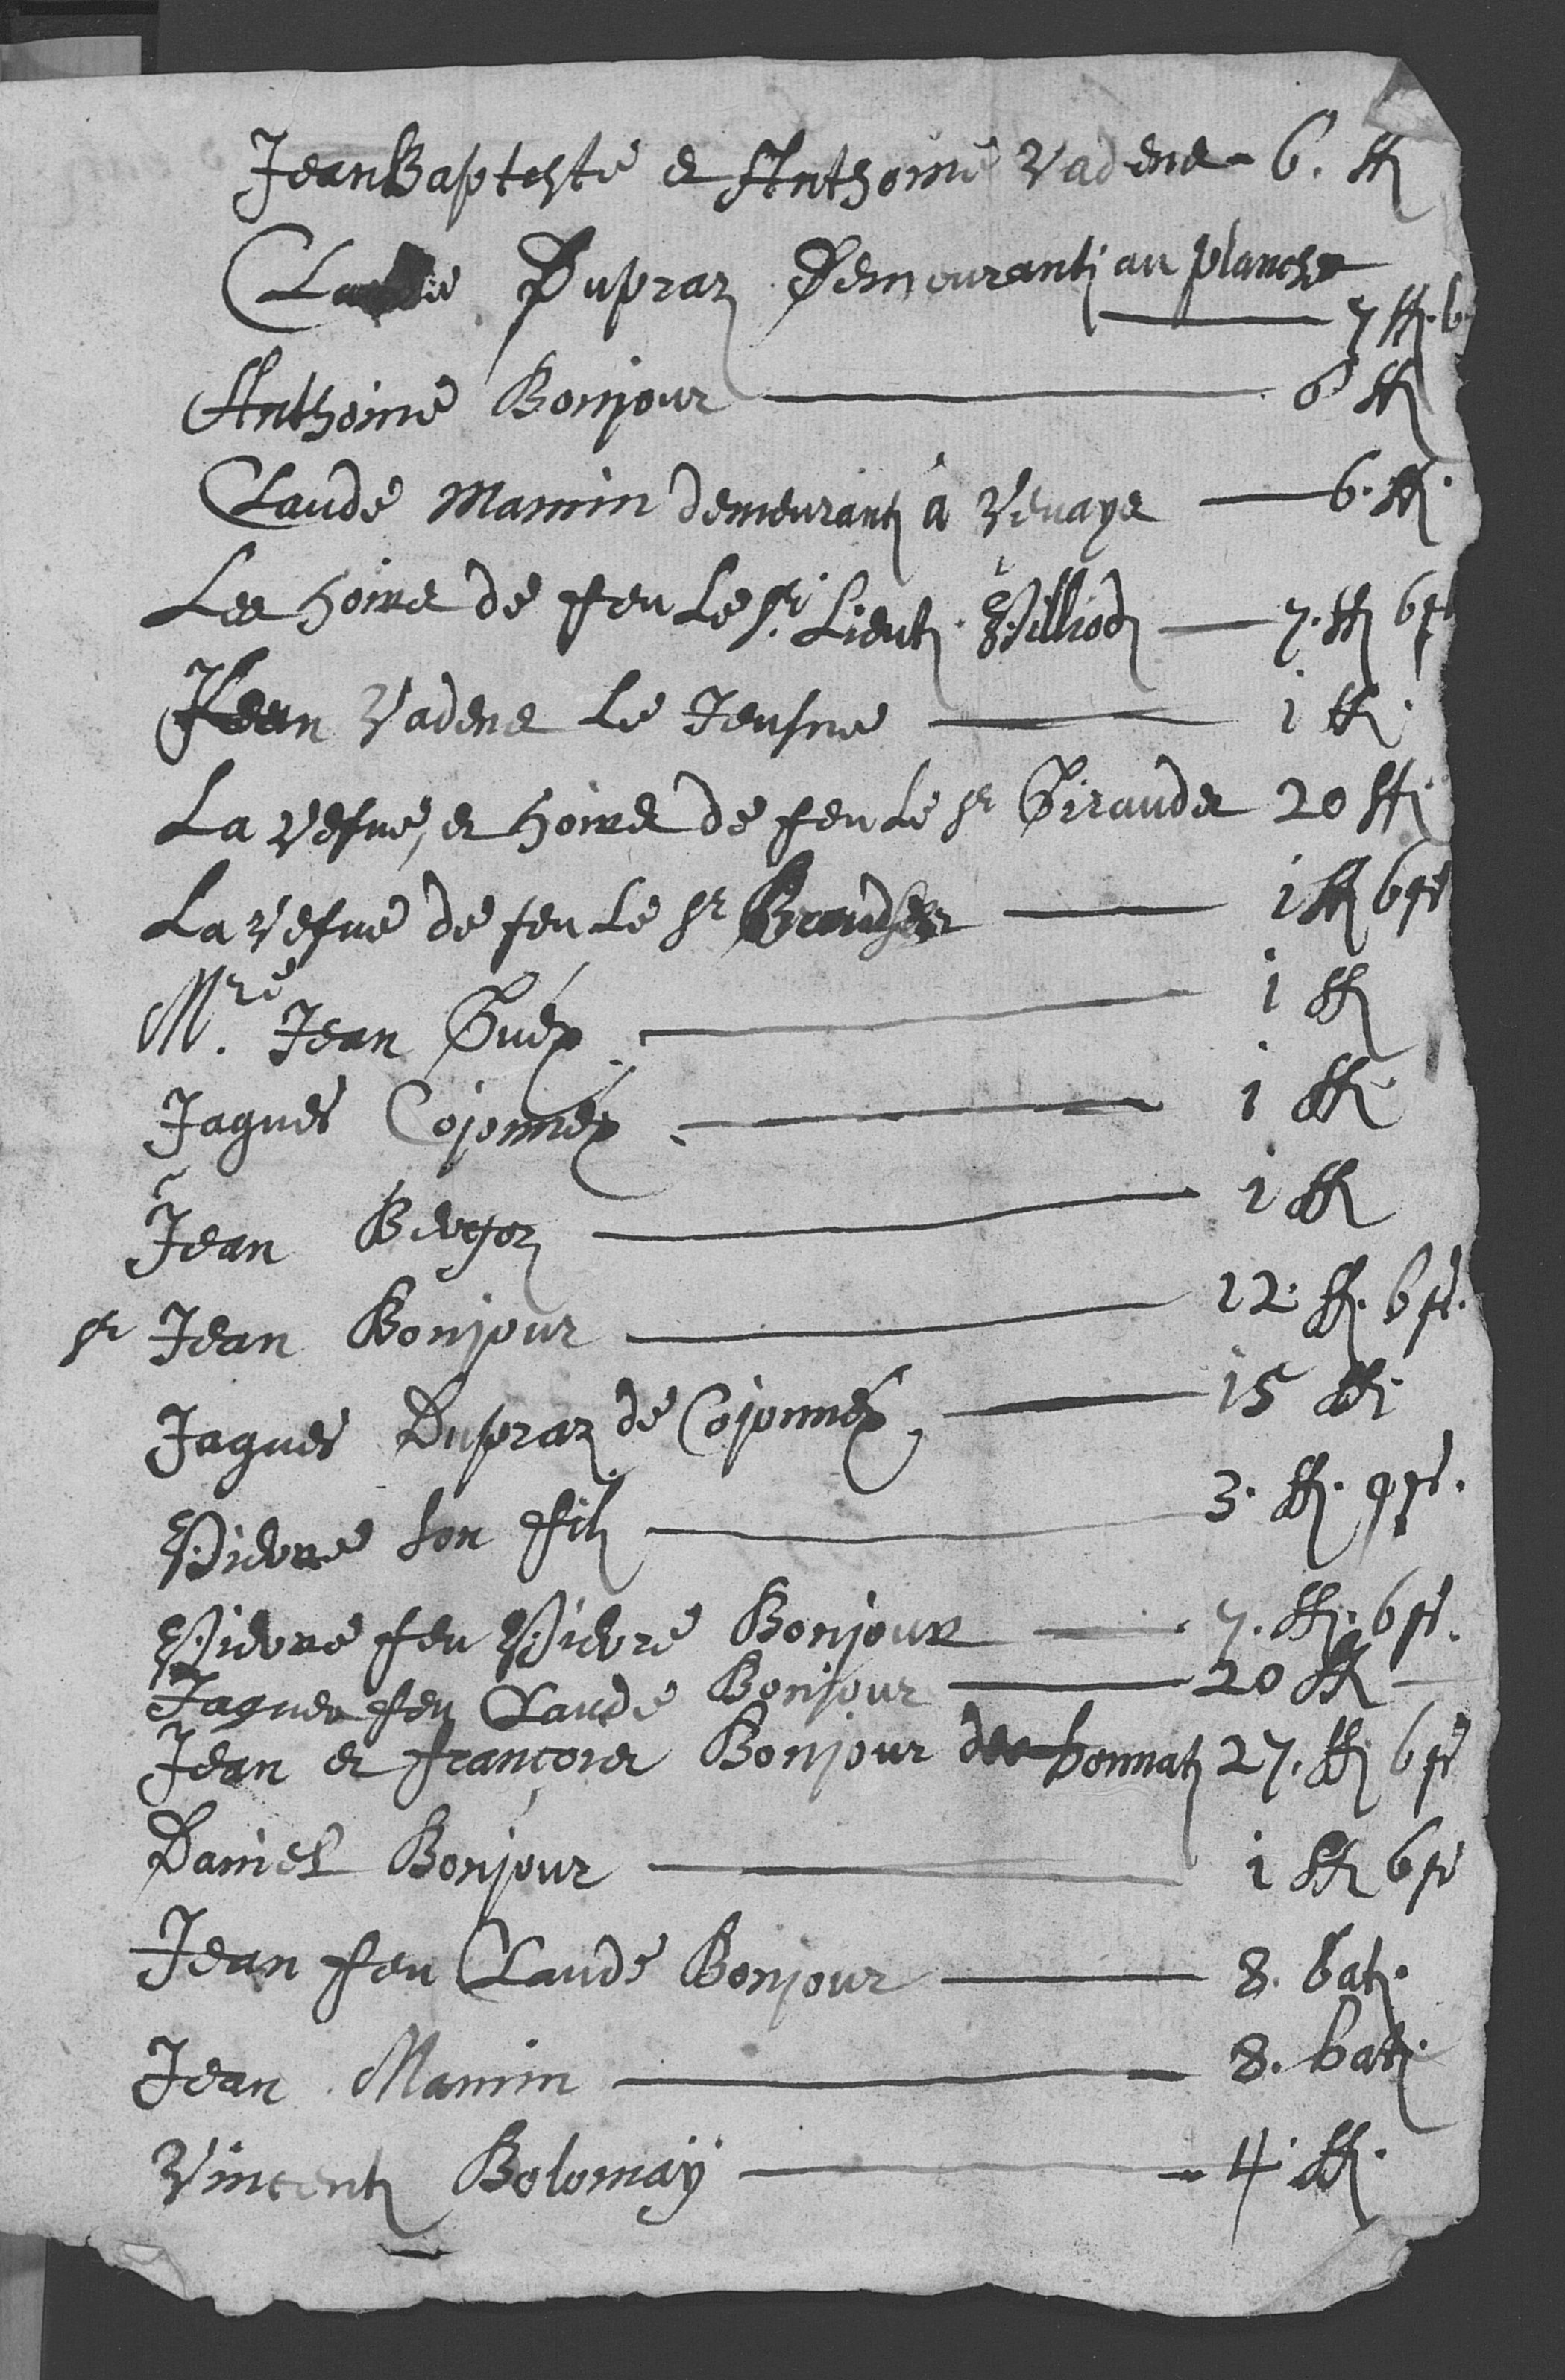 Jean Baptiste et Anthoine Vadens - 6. ff
Claude Dupraz Demeurant au planche
7 ff. 6
Anthoine Bonjour 6 ff
Claude Mamin demeurant a Vevaye 6. ff.
Les hoirs de feu Le Sr. Lieut. Pilliod 7. ff 6 ss
Jean Vadens Le Jeusne 1 ff.
La vefve, et hoirs de feu Le Sr Giraudet 20 ff.
La vefve de feu Le Sr 1 ff 6 ss
Mre. Jean Guex 1 ff
Jaques Cojonnex 1 ff.
Jean 1 ff
Sr Jean Bonjour 12. ff. 6 ss.
Jaques Dupraz de Cojonnex, 15 ff.
Pierre son filz 3. ff. 9 ss.
Pierre feu Pierre Bonjour 7. ff. 6 ss.
Jaques feu Claude Bonjour 20 ff
Jean et françois Bonjour des bonnatz 27. ff 6 ss
Daniel Bonjour 1 ff 6 ss
Jean feu Claude Bonjour 8. batz.
Jean Mamin 8. batz.
Vincent Bolomay 4 ff.